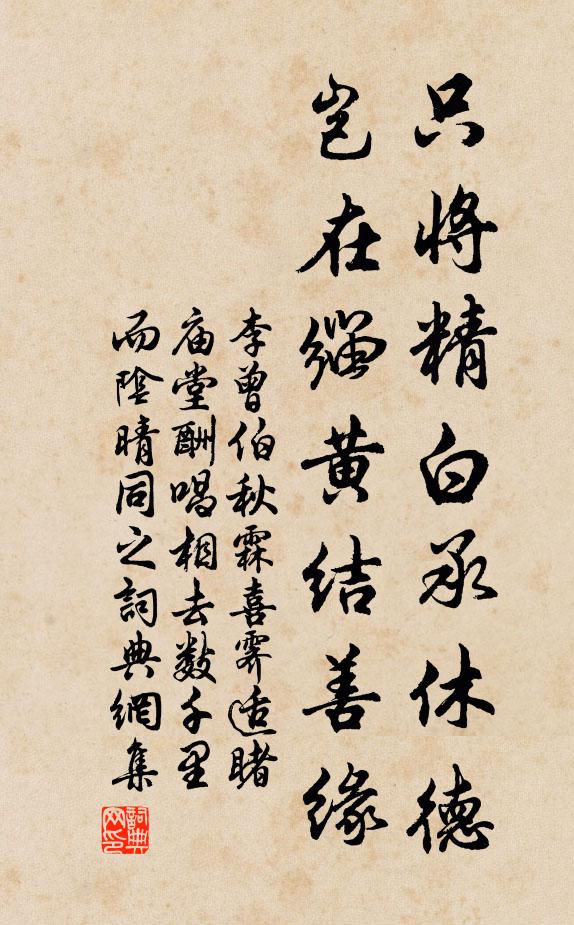 只将精白承休德
岂在缁黄结善缘
李曾伯秋霖喜霽适睹
庙堂酬唱相去数千里
而陰晴同之詞典網集
詞典网印